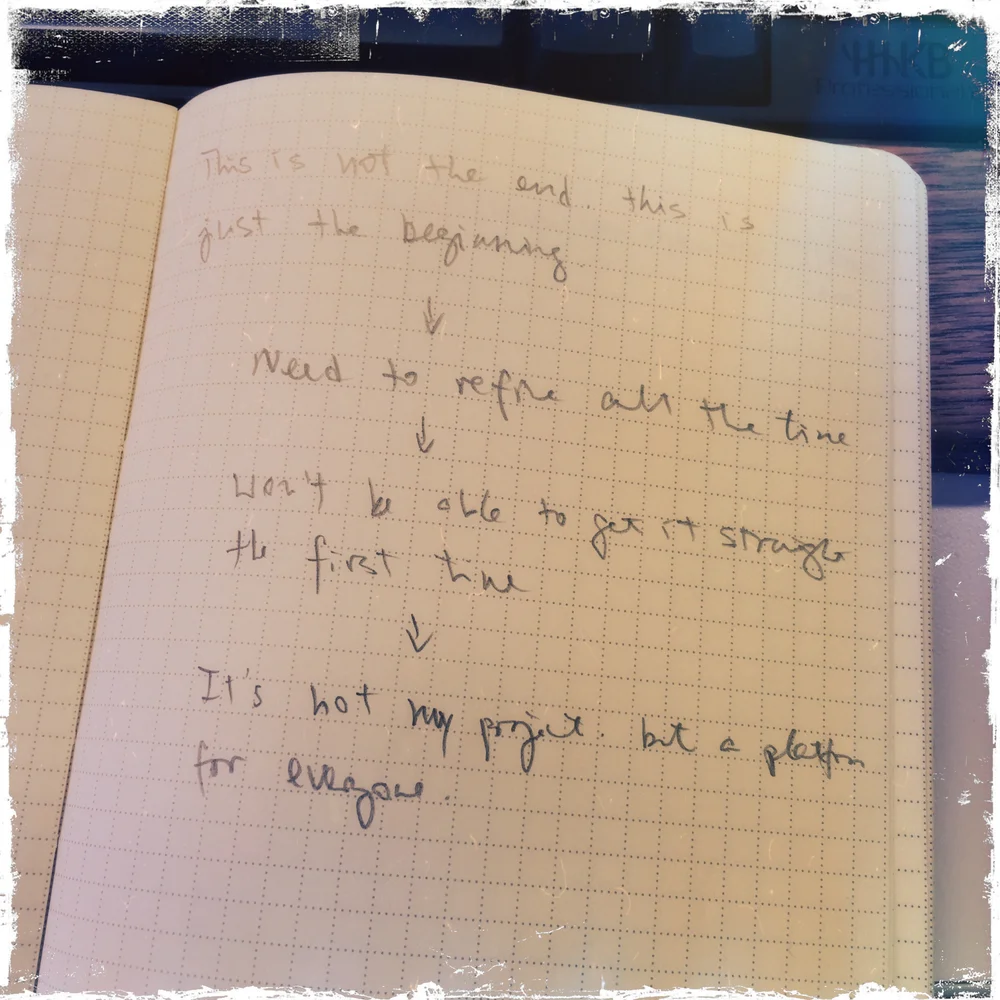 HHKB
Professional
This is not the end. this is
just the beginning
↓
Need to refine all the time
↓
Won't be able to get it straight
the first time
↓
It's not my project. but a platform
for everyone.